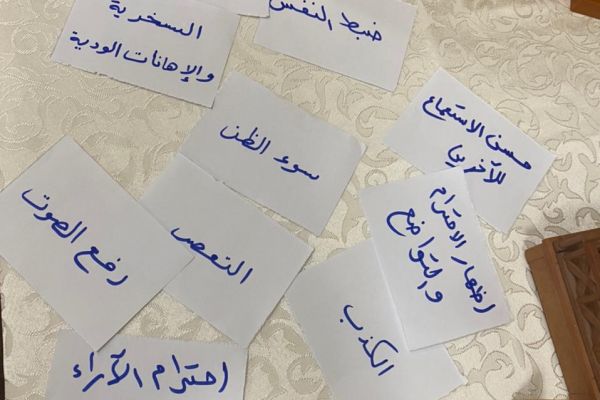 السخرية
والإهانات الودية
ضبط النفس
سوء الظن
حسن الاستماع
للآخرين
رفع الصوت
التعصب
إظهار الاحترام
والتواضع
الكذب
احترام الآراء